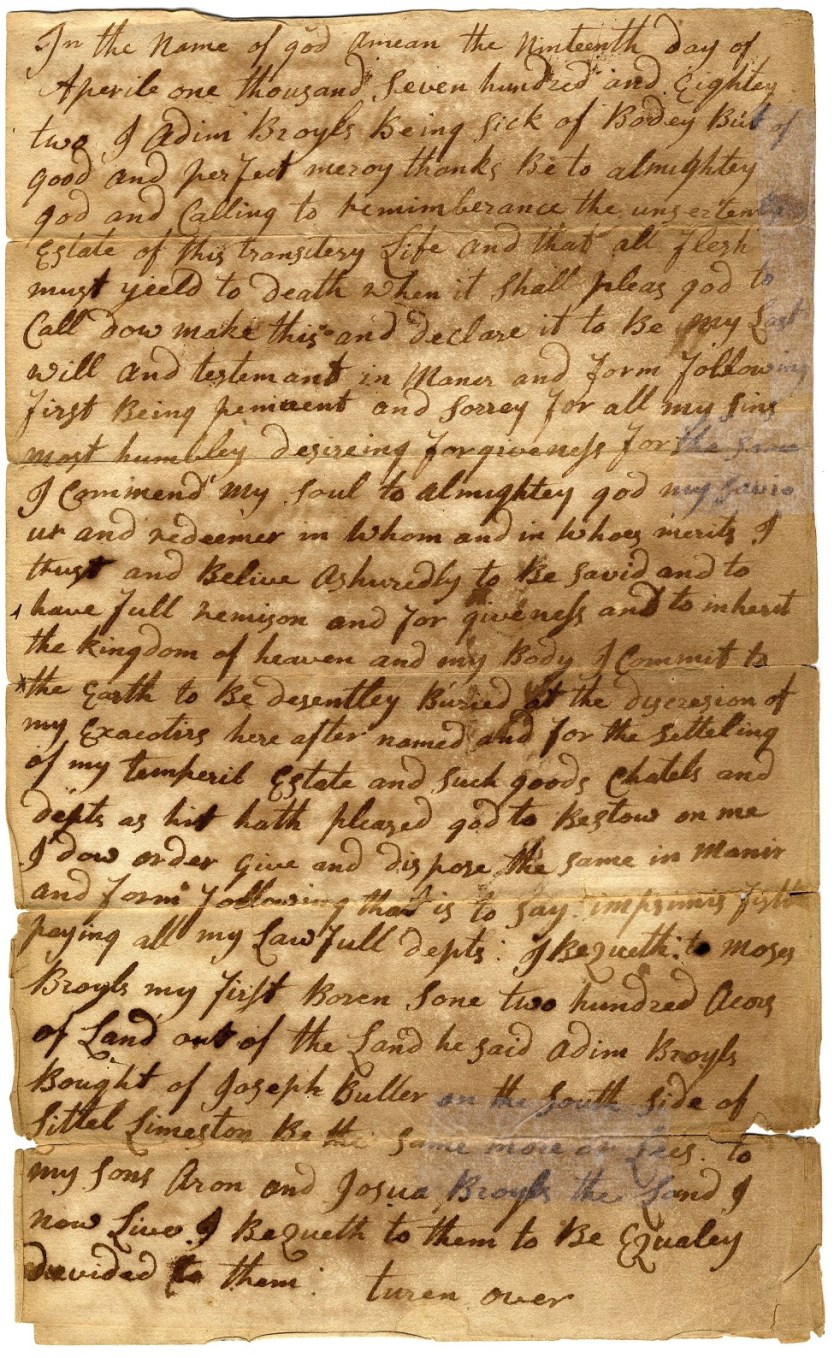 In the Name of god amean the Ninteenth day of
Aperile one thousand Seven hundred and Eightey
two I Adim Broyls Being Sick of Bodey But of
good and perfect mercy thanks Be to almightey
god and Calling to remimberance the unserten
Estate of this transitery Life and that all flesh
must yeeld to death when it Shall pleas god to
Call dow make this and declare it to Be my Last
will and testemant in Maner and form following
first Being penitent and Sorrey for all my Sins
most humbley desireing forgiveness for the Same
I Commend my Soul to almightey god my Savio
ur and redeemer in whom and in whoes merits I
trust and Belive Ashuredly to Be Savid and to
have full remison and for giveness and to inherit
the kingdom of heaven and my Body I Commit to
the Earth to Be desentley Buried at the discresion of
my Exacotirs here after named and for the Setteling
of my temperil Estate and Such goods Chatels and
depts as hit hath pleased god to Bestow on me
I dow order give and dispose the Same in Manir
and form following that is to Say imprimis first
paying all my Law full depts : I Bequeth to Moses
Broyls my first Boren Sone two hundred Acors
of Land out of the Land he said Adim Broyls
Bought of Joseph Buller on the South Side of
Littel Limeston Be the Same more or Lees. to
my Sons Aron and Josua Broyls the Land I
now Live I Bequeth to them to Be Equaley
devided to them : turen over